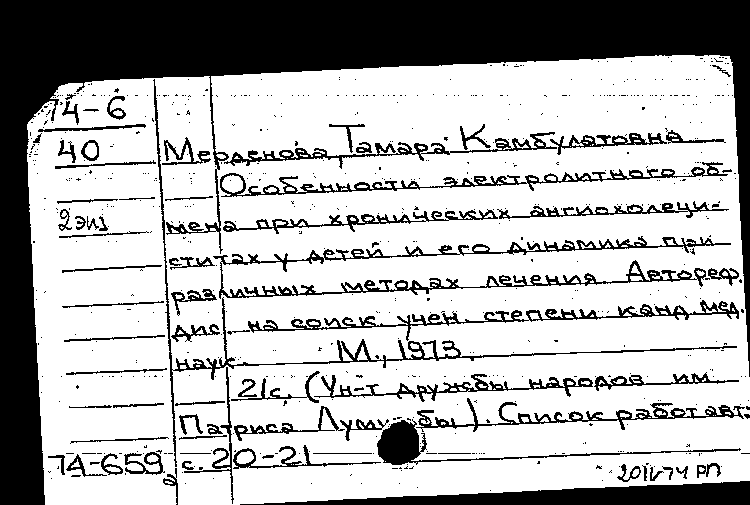 74-6
40
Мерденова, Тамара Камбулатовна
Особенности электролитного об-
2 экз
мена при хронических ангиохолеци-
ститах у детей и его динамика при
различных методах лечения. Автореф.
дис. на соиск. учен. степени канд. мед.
наук. М., 1973.
21с. (Ун-т дружбы народов им.
Патриса Лумумбы). Список работ авт.:
74-659 с. 20-21.